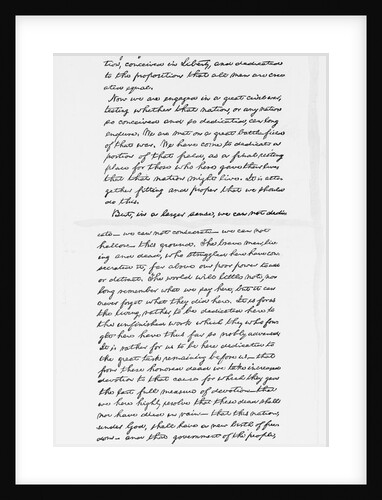 tion, conceived in Liberty, and dedicated
to the proposition that all men are cre
ated equal.
Now we are engaged in a great civil war,
testing whether that nation, or any nation
so conceived and so dedicated, can long
endure. We are met on a great battle field
of that war. We have come to dedicate a
portion of that field, as a final resting
place for those who here gave their lives
that that nation might live. It is alto
gether fitting and proper that we should
do this.
But, in a larger sense, we can not dedi
cate— we can not consecrate— we can not
hallow— this ground. The brave men, liv
ing and dead, who struggled here have con
secrated it, far above our poor power to add
or detract. The world will little note, nor
long remember what we say here, but it can
never forget what they did here. It is for us
the living, rather, to be dedicated here to
the unfinished work which they who fou
ght here have thus far so nobly advanced.
It is rather for us to be here dedicated to
the great task remaining before us— that
from these honored dead we take increased
devotion to that cause for which they gave
the last full measure of devotion— that
we here highly resolve that these dead shall
not have died in vain— that this nation,
under God, shall have a new birth of free
dom— and that government of the people,